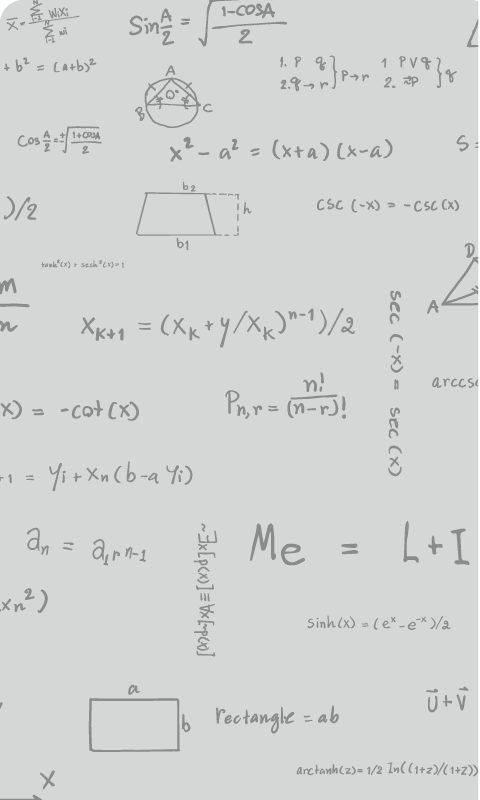 x̄ = Σ WiXi / Σ wi
Sin A/2 = √(1-COSA / 2)
+ b² = (a+b)²
1. P q } P→r
2. q → r
1 P V q } q
2. ~P
A
O
B C
Cos A/2 = ±√(1+COSA / 2)
x² - a² = (x+a) (x-a)
S =
)/2
b₂
h
b₁
csc (-x) = -csc(x)
tanh²(x) + sech²(x) = 1
D
A
m
n
X_{K+1} = (X_K + y/X_K)^{n-1})/2
sec (-x) = sec (x)
x) = -cot (x)
P_{n,r} = n! / (n-r)!
arccsc
+1 = yi + xn (b - a yi)
a_n = a_1 r n-1
~∃x[p(x)] ≡ ∀x[~p(x)]
Me = L+I
xn²)
sinh(x) = (e^x - e^{-x})/2
a
b
rectangle = ab
U⃗ + V⃗
arctanh(z) = 1/2 In((1+z)/(1+z))
X